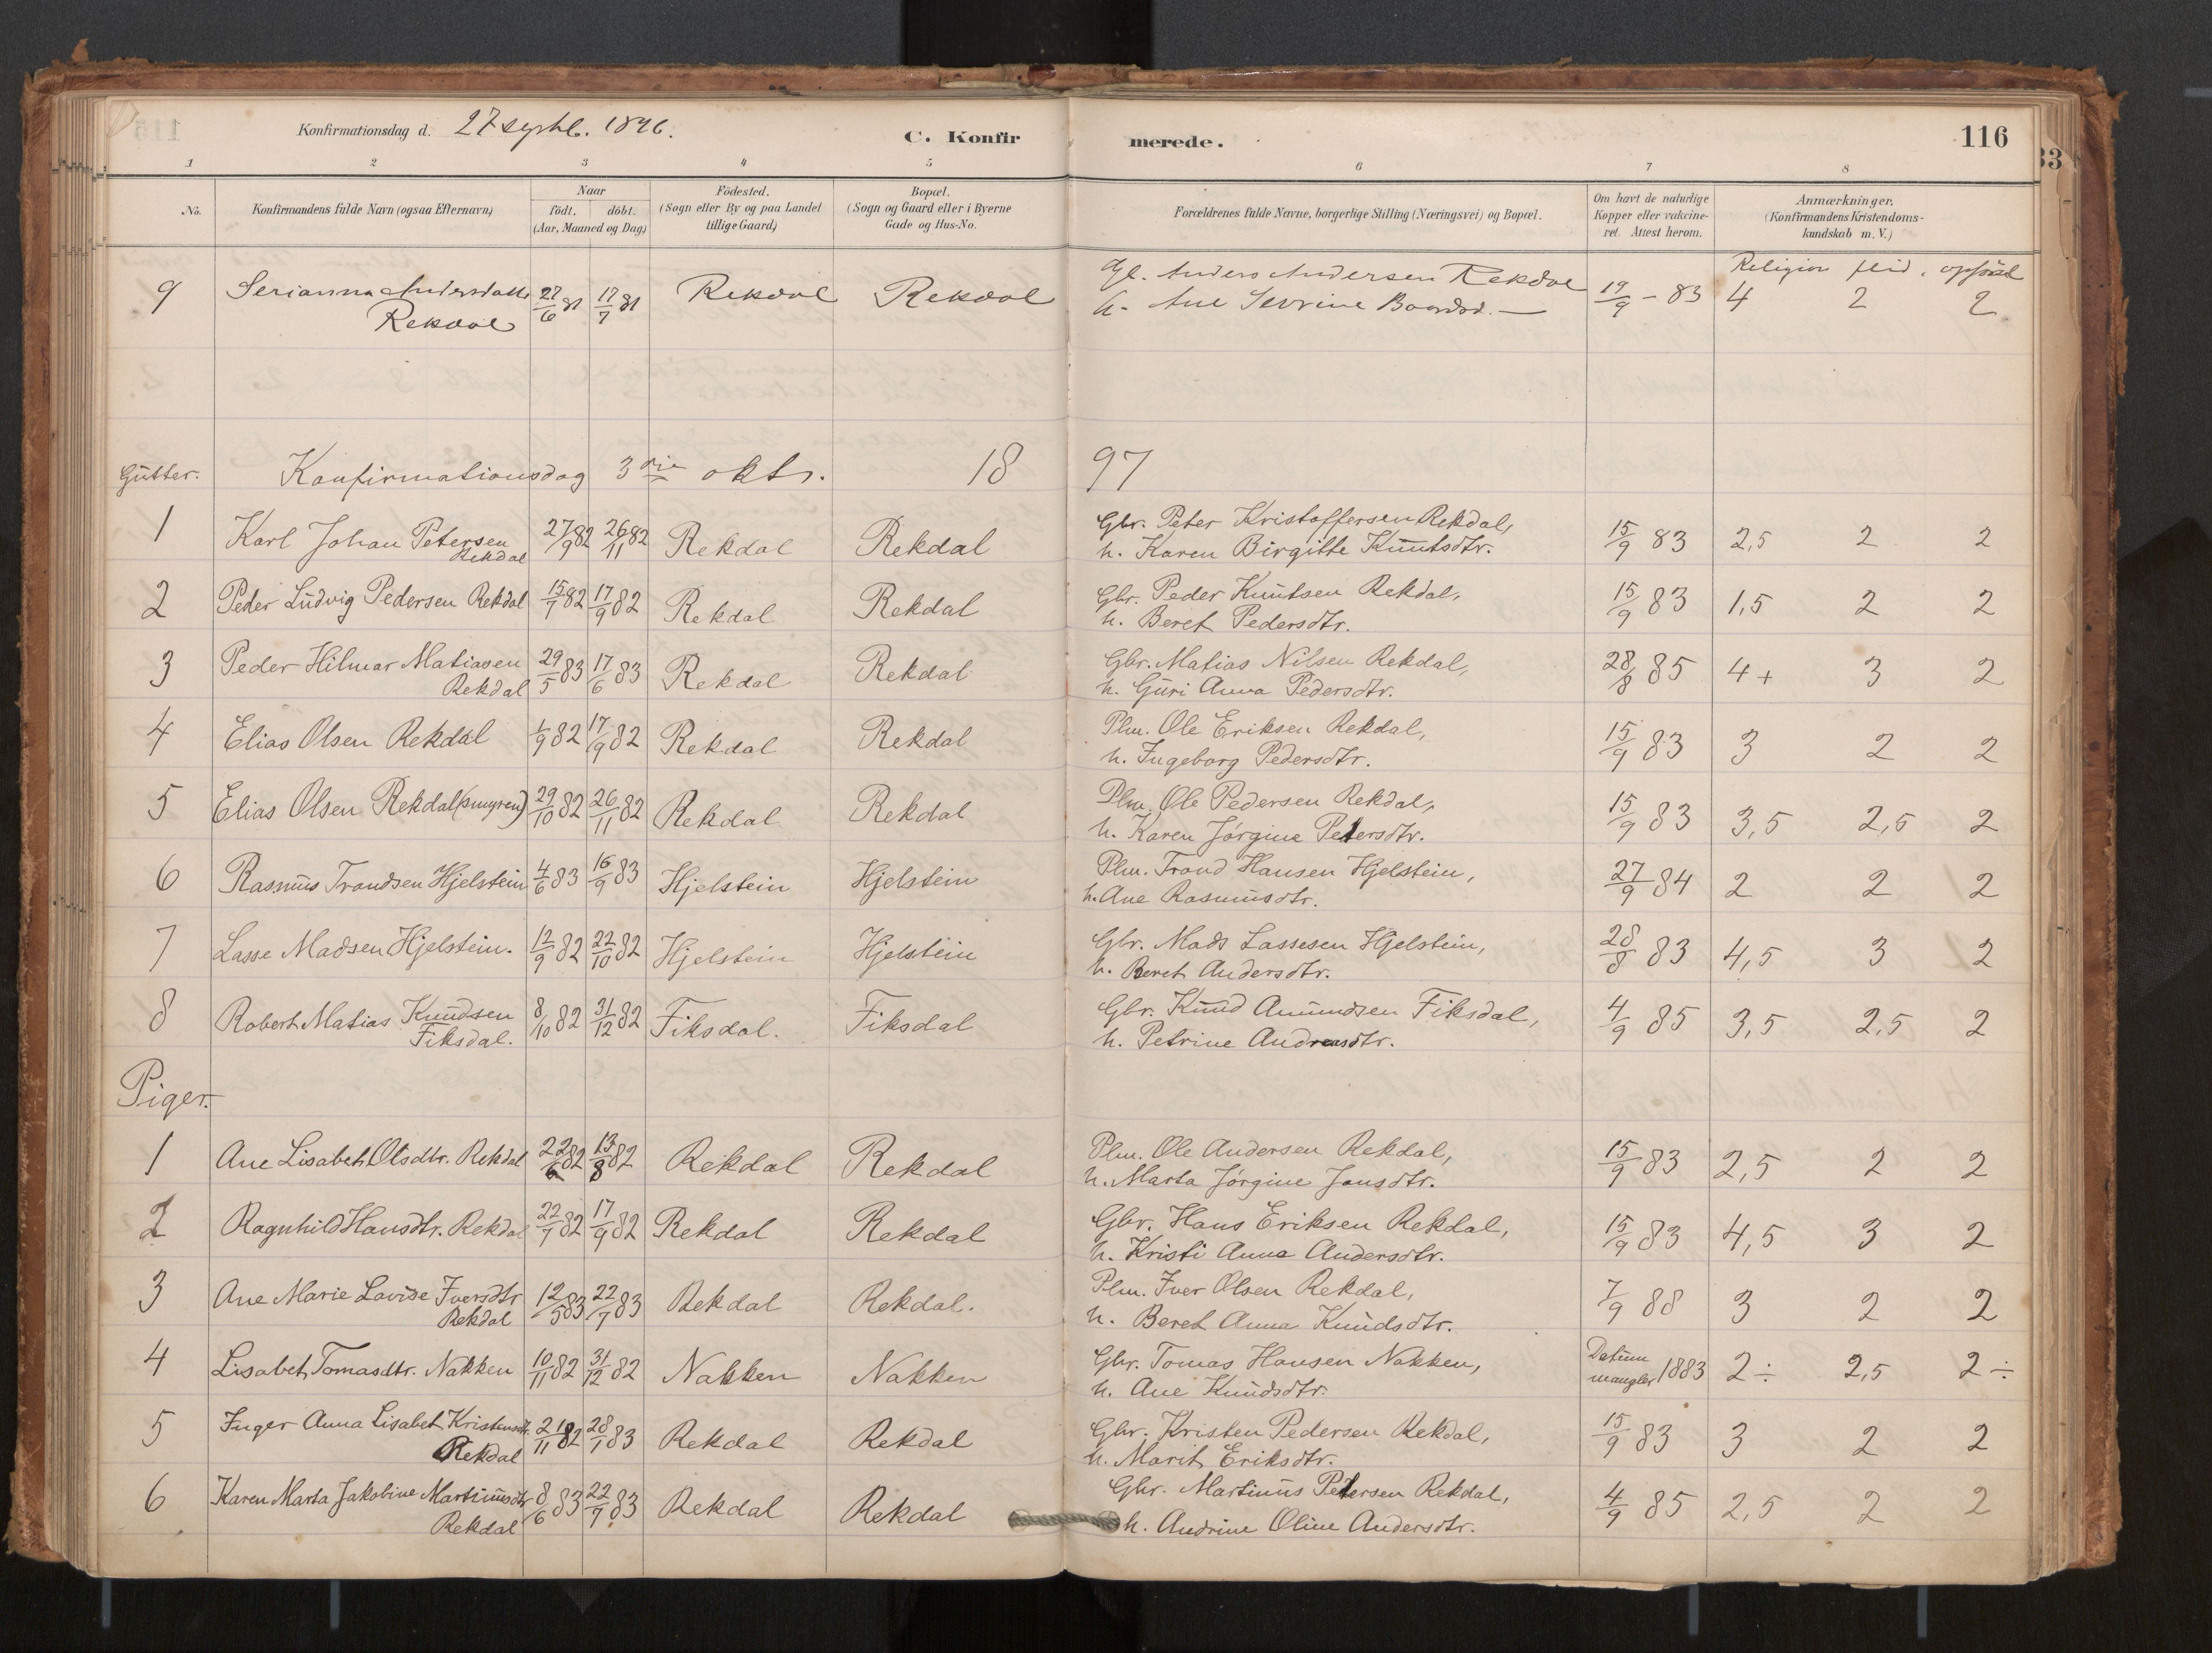 Konfirmationsdag d. 27 septbr. 1896. C. Konfirmerede. 116
1 2 3 4 5 6 7 8
No. Konfirmandens fulde Navn (ogsaa Efternavn) Naar födt. döbt. (Aar, Maaned og Dag) Födested. (Sogn eller By og paa Landet tillige Gaard) Bopæl. (Sogn og Gaard eller i Byerne Gade og Hus-No. Forældrenes fulde Navne, borgerlige Stilling (Næringsvei) og Bopæl. Om havt de naturlige Kopper eller vakcineret. Attest herom. Anmærkninger. (Konfirmandens Kristendomskundskab m. V.)
Religion flid. opførsel
9 Serianna Andersdatter Rekdal 27/6 81 17/7 81 Rekdal Rekdal Anders Andersen Rekdal 19/9 - 83 4 2 2
h. Ane Serrine Baardsd. —
Gutter. Konfirmationsdag 3die oktr. 18 97
1 Karl Johan Petersen Rekdal 27/9 82 26/11 82 Rekdal Rekdal Gbr. Peter Kristoffersen Rekdal, 15/9 83 2,5 2 2
h. Karen Birgitte Knutsdtr.
2 Peder Ludvig Pedersen Rekdal 15/7 82 17/9 82 Rekdal Rekdal Gbr. Peder Knutsen Rekdal, 15/9 83 1,5 2 2
h. Beret Pedersdtr.
3 Peder Hilmar Matiasen Rekdal 29/5 83 17/6 83 Rekdal Rekdal Gbr. Matias Nilsen Rekdal, 28/8 85 4+ 3 2
h. Guri Anna Pedersdtr.
4 Elias Olsen Rekdal 1/9 82 17/9 82 Rekdal Rekdal Plm. Ole Eriksen Rekdal, 15/9 83 3 2 2
h. Ingeborg Pedersdtr.
5 Elias Olsen Rekdal(smyren) 29/10 82 26/11 82 Rekdal Rekdal Plm. Ole Pedersen Rekdal, 15/9 83 3,5 2,5 2
h. Karen Jørgine Petersdtr.
6 Rasmus Trondsen Hjelstein 4/6 83 16/9 83 Hjelstein Hjelstein Plm. Trond Hansen Hjelstein, 27/9 84 2 2 2
h. Ane Rasmusdtr.
7 Lasse Madsen Hjelstein. 12/9 82 22/10 82 Hjelstein Hjelstein Gbr. Mads Lassesen Hjelstein, 28/8 83 4,5 3 2
h. Beret Andersdtr.
8 Robert Matias Knudsen Fiksdal. 8/10 82 31/12 82 Fiksdal. Fiksdal Gbr. Knud Amundsen Fiksdal, 4/9 85 3,5 2,5 2
h. Petrine Andreasdtr.
Piger.
1 Ane Lisabet Olsdtr. Rekdal 22/6 82 13/8 82 Rekdal Rekdal Plm. Ole Andersen Rekdal, 15/9 83 2,5 2 2
h. Marta Jørgine Jonsdtr.
2 Ragnhild Hansdtr. Rekdal 22/7 82 17/9 82 Rekdal Rekdal Gbr. Hans Eriksen Rekdal, 15/9 83 4,5 3 2
h. Kristi Anna Andersdtr.
3 Ane Marie Lovise Iversdtr Rekdal 12/5 83 22/7 83 Rekdal Rekdal. Plm. Iver Olsen Rekdal, 7/9 88 3 2 2
h. Beret Anna Knudsdtr.
4 Lisabet Tomasdtr. Nakken 10/11 82 31/12 82 Nakken Nakken Gbr. Tomas Hansen Nakken, Datum mangler 1883 2÷ 2,5 2÷
h. Ane Knudsdtr.
5 Inger Anna Lisabet Kristensdtr. Rekdal 21/11 82 28/1 83 Rekdal Rekdal Gbr. Kristen Pedersen Rekdal, 15/9 83 3 2 2
h. Marit Eriksdtr.
6 Karen Marta Jakobine Martinusdtr Rekdal 8/6 83 22/7 83 Rekdal Rekdal Gbr. Martinus Petersen Rekdal, 4/9 85 2,5 2 2
h. Andrine Oline Andersdtr.